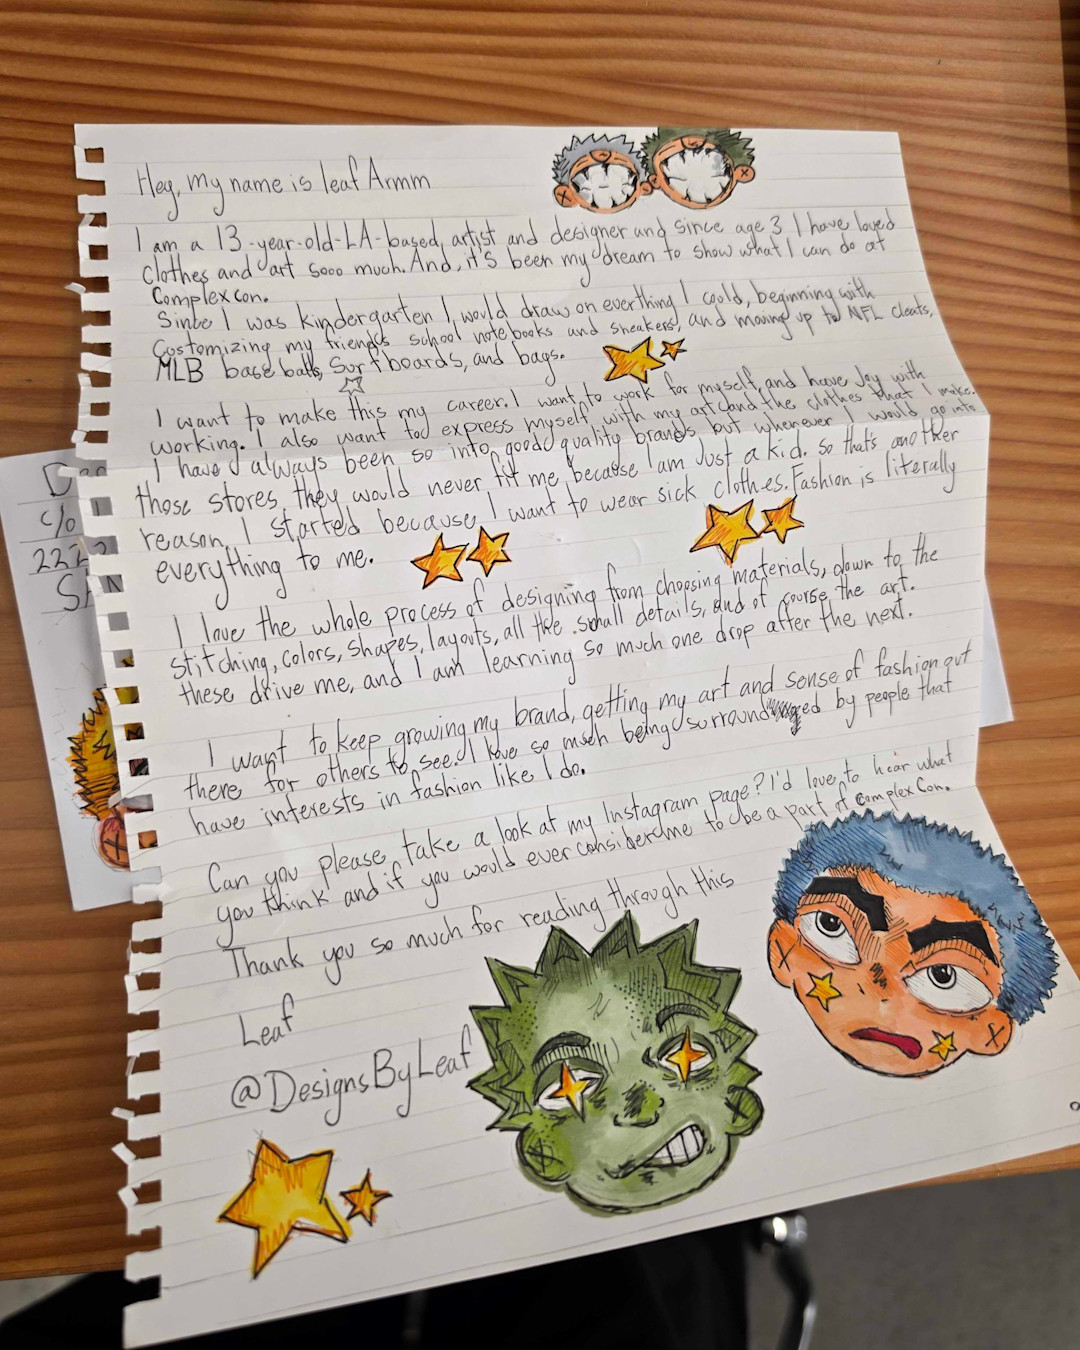 Hey, My name is leaf Armm
I am a 13-year-old-LA-based, artist and designer and since age 3 I have loved
clothes and art sooo much. And, it's been my dream to show what I can do at
Complexcon.
Since I was kindergarten I, would draw on everthing I could, beginning with
Costomizing my friends school notebooks and sneakers, and moving up to NFL cleats,
MLB baseballs, surfboards, and bags.
I want to make this my career. I want to work for myself, and have Joy with
working. I also want to express myself with my art and the clothes that I make.
I have always been so into good quality brands but whenever I would go into
those stores they would never fit me because I am Just a kid. so that's another
reason I started because I want to wear sick clothes. Fashion is literally
everything to me.
I love the whole process of designing from choosing materials, down to the
stitching, colors, shapes, layouts, all the small details, and of course the art.
these drive me, and I am learning so much one drop after the next.
I want to keep growing my brand, getting my art and sense of fashion out
there for others to see. I love so much being surrounded by people that
have interests in fashion like I do.
Can you please take a look at my Instagram page? I'd love to hear what
you think and if you would ever consider me to be a part of ComplexCon.
Thank you so much for reading through this
Leaf
@DesignsByLeaf
c/o
222